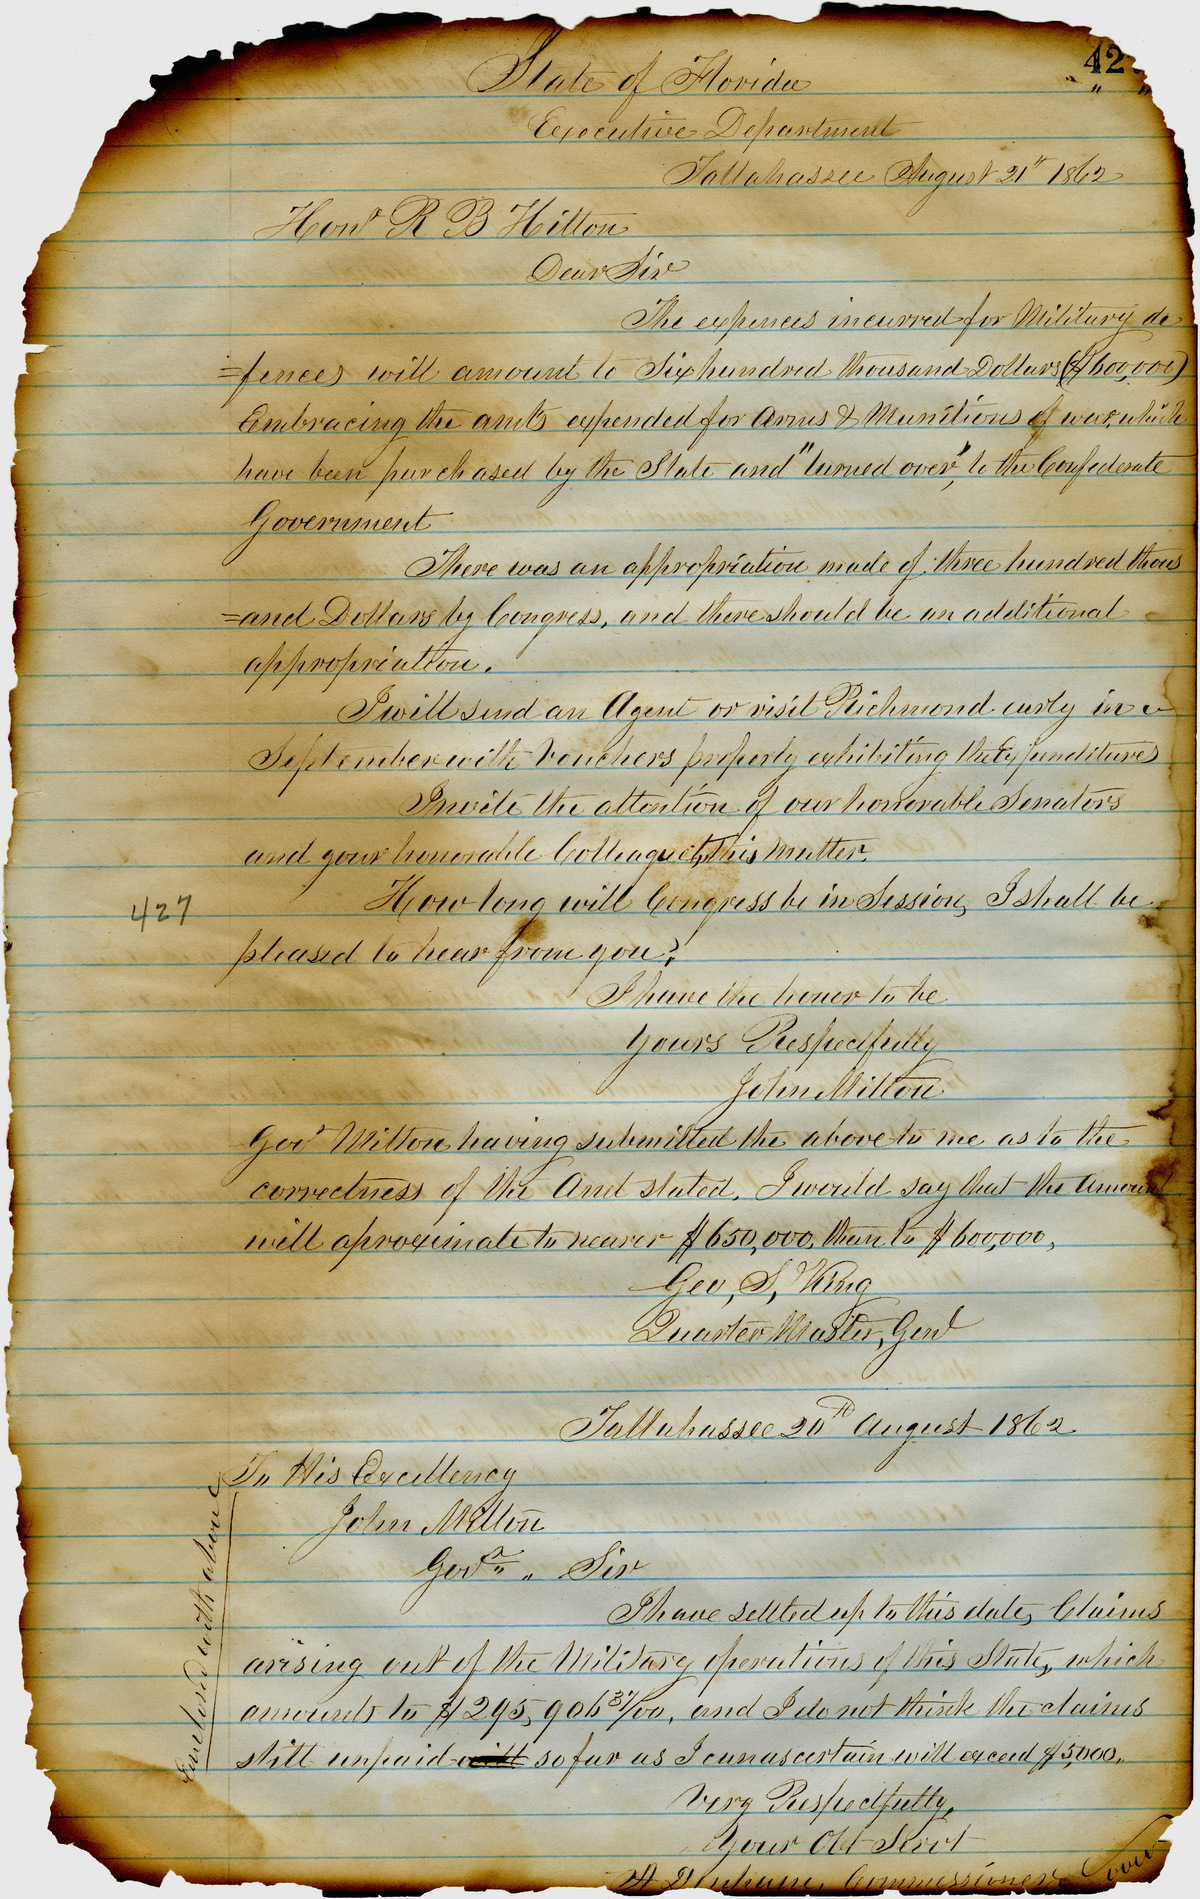 42
State of Florida
Executive Department
Tallahassee August 21st 1862
Honr R B Hilton
Dear Sir
The expences incurred for Military de
=fences will amount to Six hundred thousand Dollars ($600,000)
Embracing the amts expended for Arms & Munitions of war, which
have been purchased by the State and "turned over", to the Confederate
Government
There was an appropriation made of three hundred thous
=and Dollars by Congress, and there should be an additional
appropriation.
I will send an Agent or visit Richmond early in
September with Vouchers properly exhibiting the Expenditures
Invite the attention of our honorable Senators
and your honorable Colleague to this Matter.
How long will Congress be in Session, I shall be
427
pleased to hear from you?
I have the honor to be
Yours Respectfully
John Milton
Govr Milton having submitted the above to me as to the
correctness of the Amt stated. I would say that the Amount
will aproximate to nearer $650,000, than to $600,000,
Geo, S, King
Quarter Master, Genl
Tallahassee 20th August 1862
To His Excellency
John Milton
Govr " " Sir
Enclosed with above
I have settled up to this date, Claims
arising out of the Military operations of this State, which
amounts to $295,906 37/00, and I do not think the claims
still unpaid will so far as I can ascertain will exceed $5,000,,
Very Respectfully,
Your Obt Servt
Commissioner
over